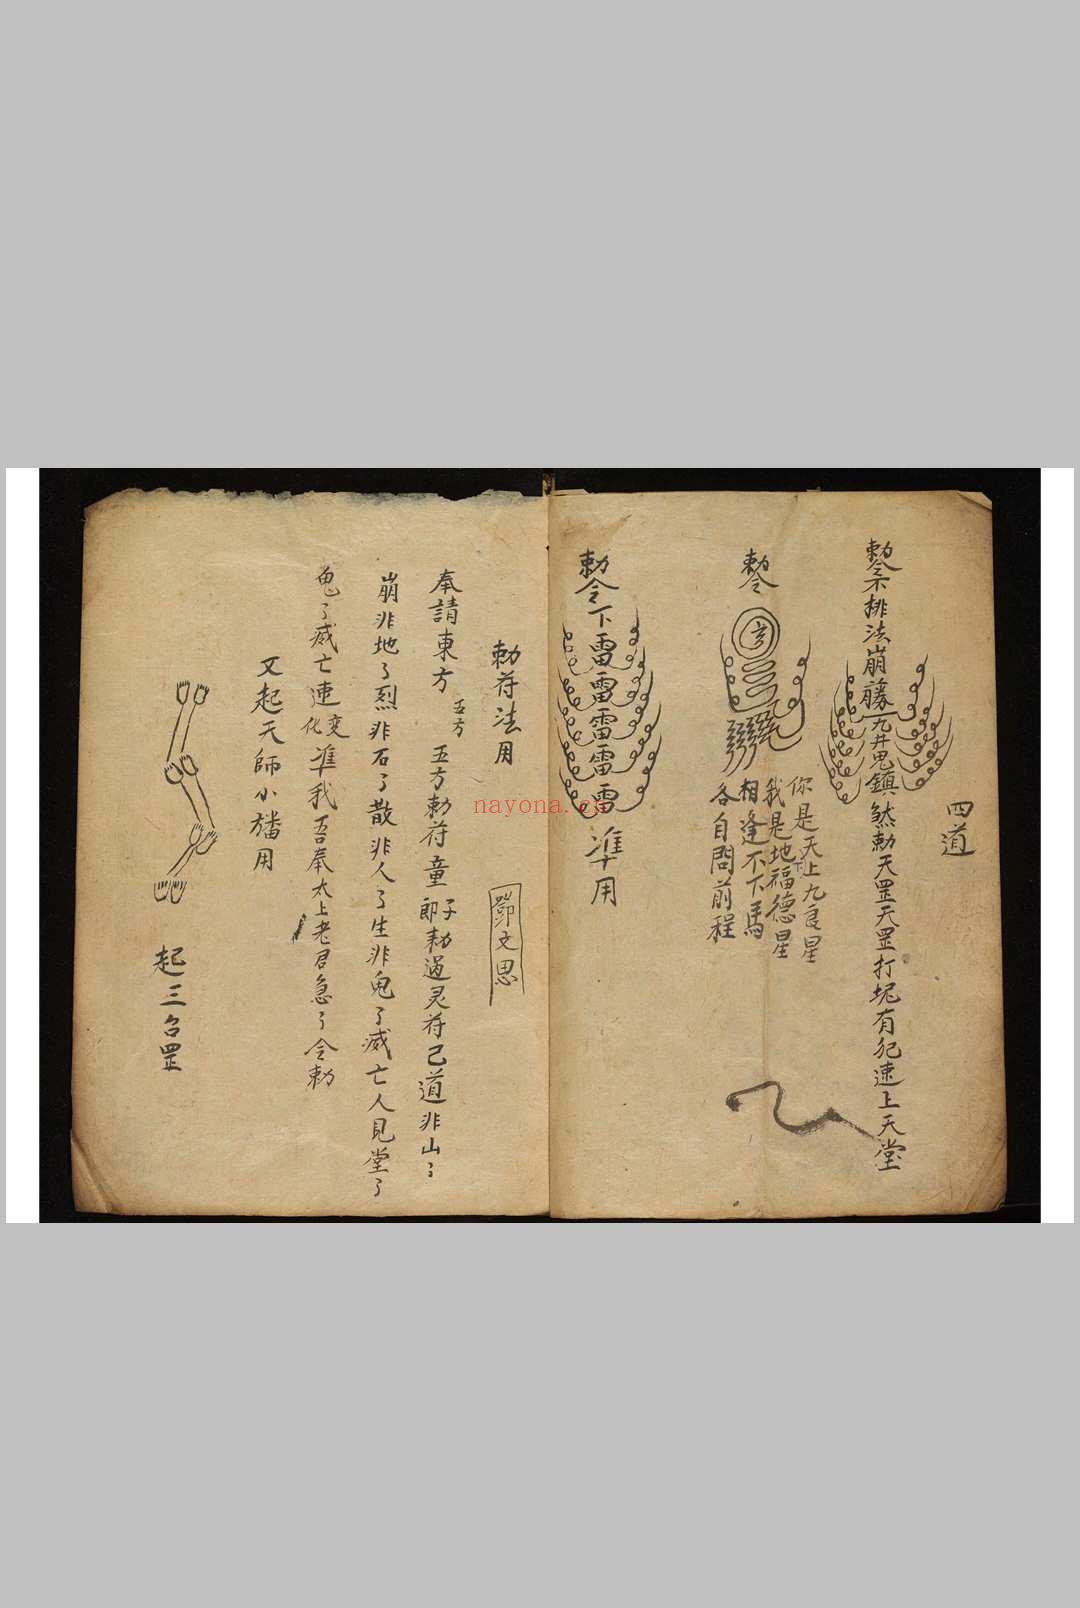 四道
排法崩䕨九井鬼鎮煞勅天罡天罡打有犯速上天堂
勅令
你是天上九良星
我是地福德星
相逢不下馬
各自問前程
勅令下雷雷雷雷雷準用
勅符法用
鄧文思
奉請東方五方五方勅符童子郎勅過灵符己道非山〻
崩非地〻烈非石〻散非人〻生非鬼〻滅亡人見堂〻
鬼〻滅亡連变化準我吾奉太上老君急〻令勅
又起天師小旛用
起三台罡
nayona.cn